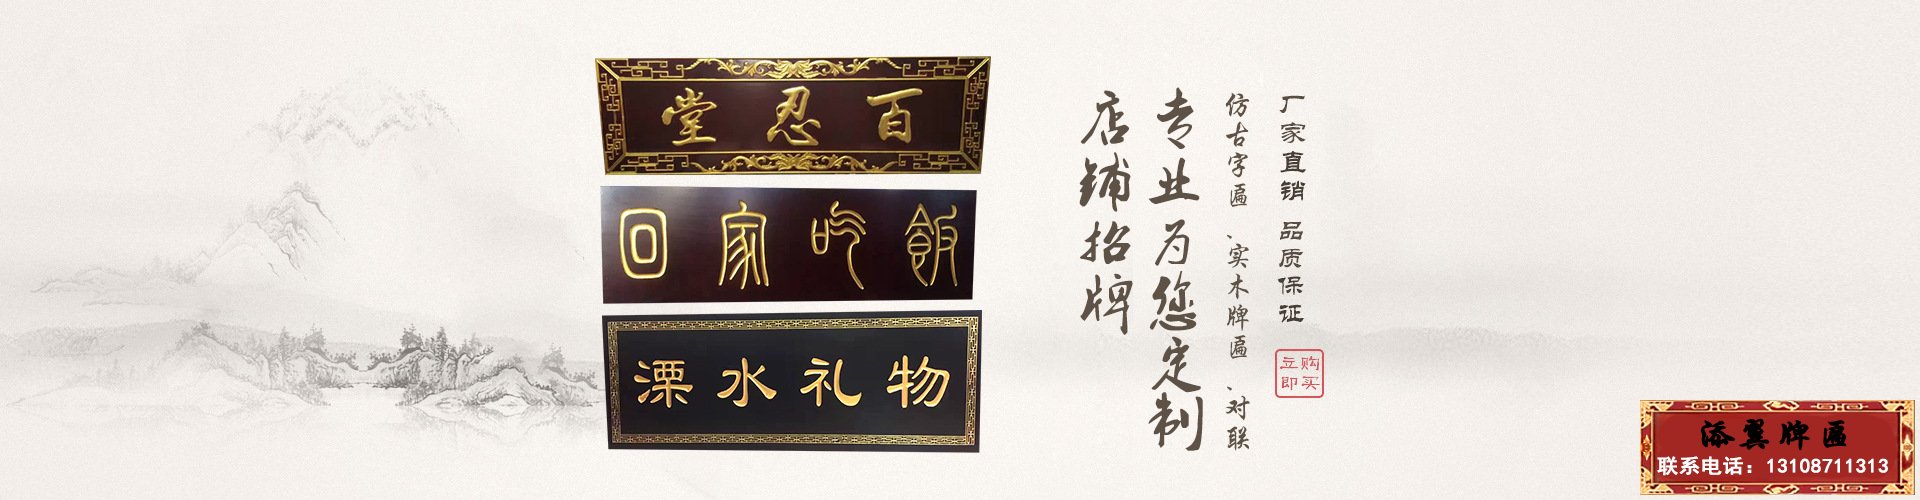 堂忍百
回家吃飯
溧水礼物
厂家直销 品质保证
仿古字匾、实木牌匾、对联
专业为您定制
店铺招牌
立即购买
添翼牌匾
联系电话：13108711313